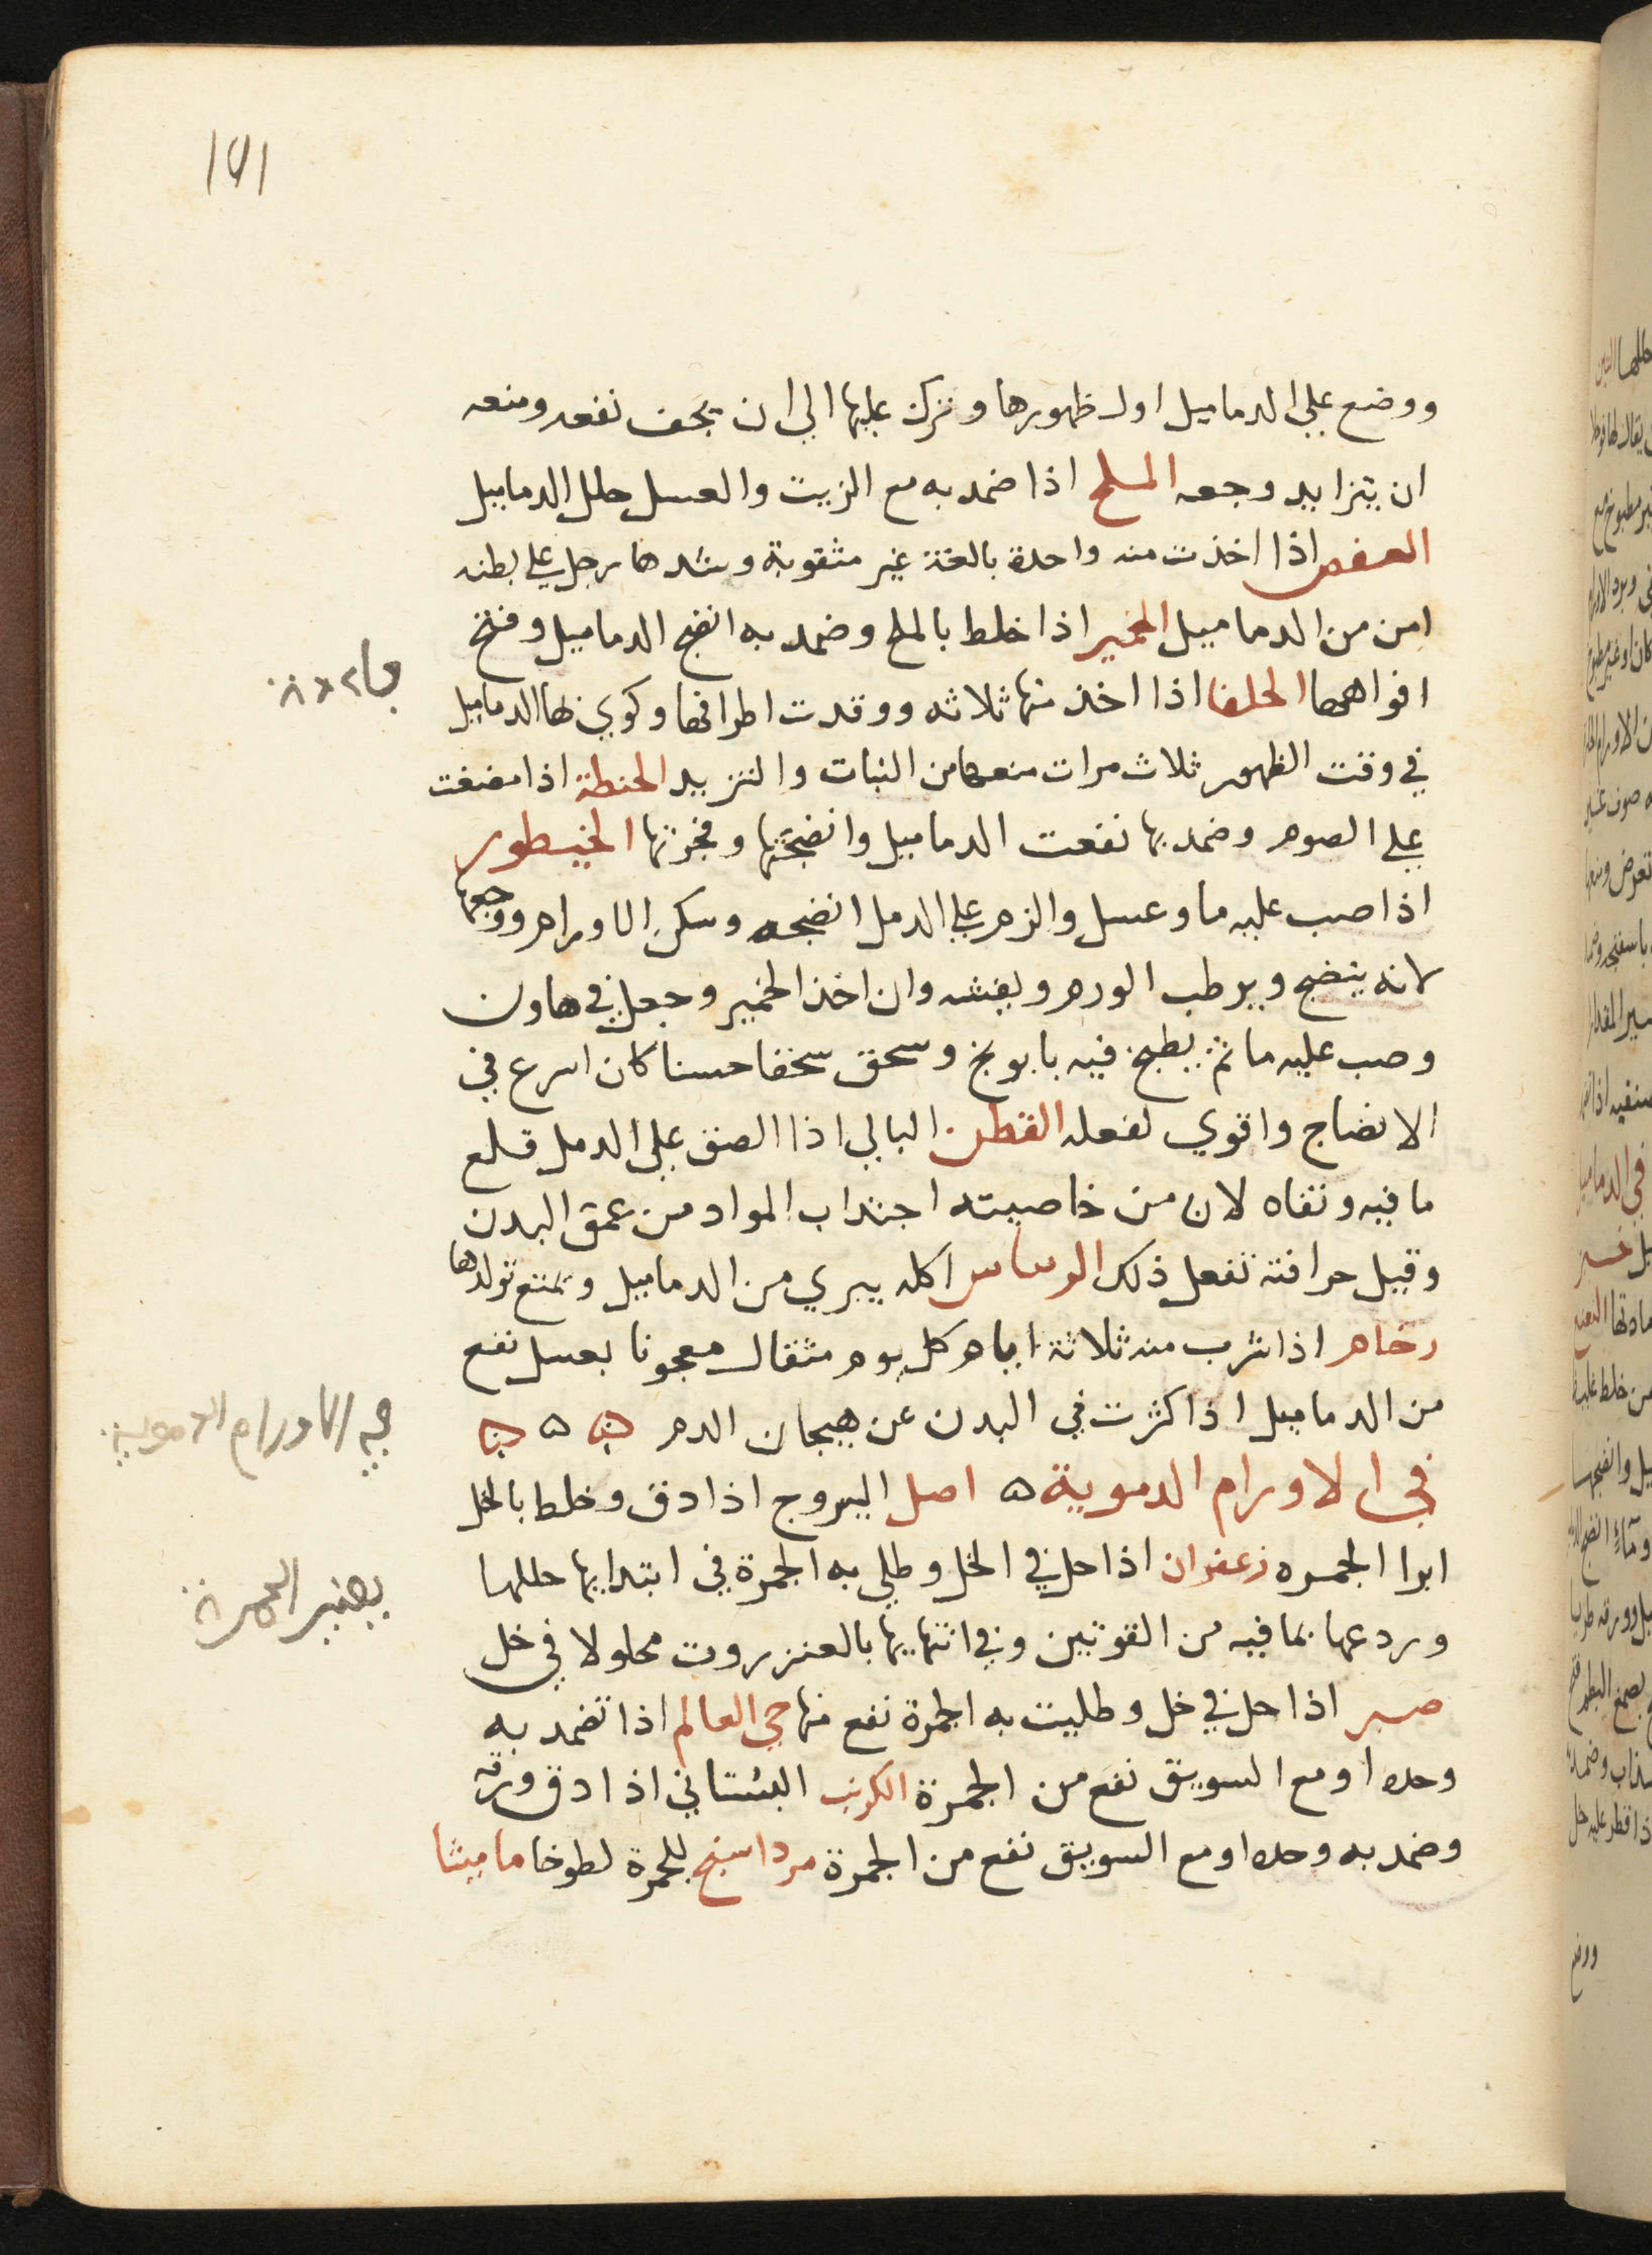 ووضع علي الدماميل اول ظهورها وترك عليها الي ان يجف نفعه ومنعه
ان يتزايد وجعه الملح اذا ضمد به مع الزيت والعسل حلل الدماميل
العفص اذا اخذت منه واحدة بالغة غير مثقوبة وشدها رجل علي بطنه
امن من الدماميل الخمير اذا خلط بالملح وضمد به انضج الدماميل وفتح
افواهها الحلفا اذا اخذ منها ثلاثه ووقدت اطرافها وكوي بها الدماميل
في وقت الظهور ثلاث مرات منعها من النبات والتزييد الحنطة اذا مضغت
علي الصوم وضمد بها نفعت الدماميل وانضجتها وفجرتها
اذا صب عليه ما وعسل والزم علي الدمل انضجه وسكن الاورام ووجعها
لانه ينضج ويرطب الورم ويفشه وان اخذ الخمير وجعل في هاون
وصب عليه ما ثم يطبخ فيه بابونج وسحق سحقا حسنا كان اسرع في
الانضاج واقوي لفعله القطن البالي اذا الصق علي الدمل قلع
ما فيه ونقاه لان من خاصيته اجتداب المواد من عمق البدن
وقيل حراقته تفعل ذلك اكله يبري من الدماميل ويمنع تولدها
رخام اذا شرب منه ثلاثة ايام كل يوم مثقال معجونا بعسل نفع
من الدماميل اذا كثرت في البدن عن هيجان الدم ه ه ه
في الاورام الدموية ه اصل اليبروج اذا دق وخلط بالخل
ابرا الجمره زعفران اذا حل في الخل وطلي به الحمرة في ابتدايها حللها
وردعها بما فيه من القوتين وفي انتهايها بالعنزروت محلولا في خل
صبر اذا حل في خل وطليت به الحمرة نفع منها حي العالم اذا تضمد به
وحده او مع السويق نفع من الحمرة الكرنب البستاني اذا دق ورقه
وضمد به وحده او مع السويق نفع من الحمرة مرداسنج للحمرة لطوخا ماميثا
في الاورام الدموية